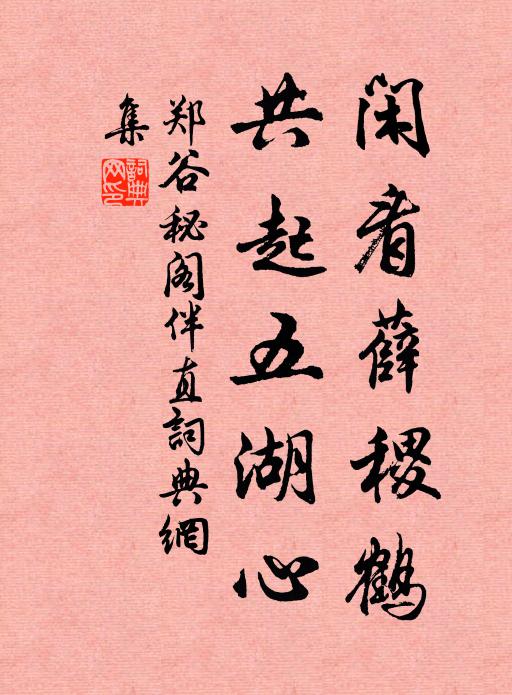 闲看薛稷鹤
共起五湖心
郑谷秘阁伴直詞典網
集
詞典網印